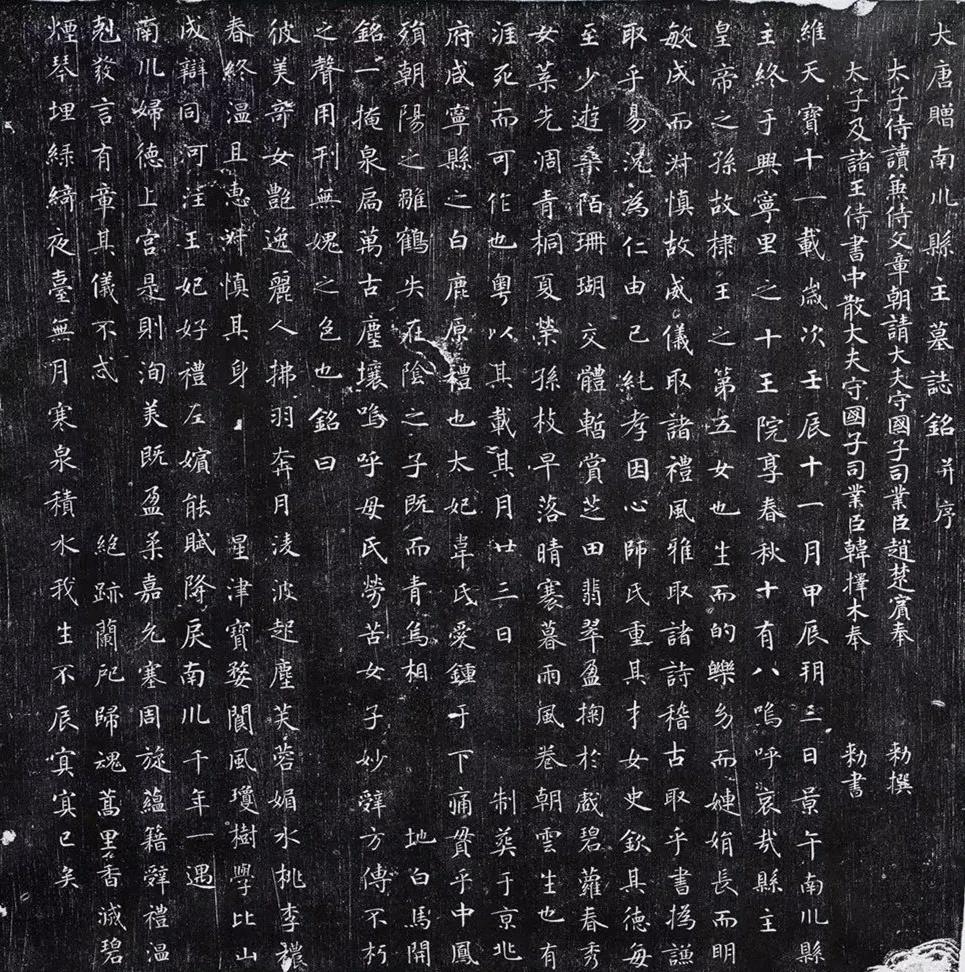 大唐贈南川縣主墓誌銘并序
太子侍讀兼侍文章朝請大夫守國子司業臣趙楚賓奉 勑撰
太子及諸王侍書中散大夫守國子司業臣韓擇木奉 勑書
維天寶十一載歲次壬辰十一月甲辰朔三日景午南川縣
主終于興寧里之十王院享春秋十有八嗚呼哀哉縣主
皇帝之孫故棣王之第五女也生而的皪幼而婕娟長而明
敏成而淑慎故威儀取諸禮風雅取諸詩稽古取乎書撝謙
取乎易況為仁由己純孝因心師氏重其才女史欽其德每
至少遊桑陌珊瑚交體暫賞芝田翡翠盈掬於戲碧蘿春秀
女菜先凋青桐夏榮孫枝早落晴褰暮雨風卷朝雲生也有
涯死而可作也粵以其載其月廿三日 制葬于京兆
府咸寧縣之白鹿原禮也太妃韋氏愛鍾于下痛貫乎中鳳
殞朝陽之雛鶴失在陰之子既而青烏相 地白馬開
銘一掩泉扃萬古塵壤嗚呼母氏勞苦女子妙辭方傳不朽
之聲用刊無媿之色也銘曰
彼美奇女艷逸麗人拂羽奔月淩波起塵芙蓉媚水桃李穠
春終溫且惠淑慎其身 星津寶婺閬風瓊樹學比山
成辯同河注王妃好禮左嬪能賦降戾南川千年一遇
南川婦德上宮是則洵美既盈柔嘉允塞周旋蘊籍辭禮溫
尅發言有章其儀不忒 絕跡蘭阤歸魂蒿里香滅碧
煙琴埋綠綺夜臺無月寒泉積水我生不辰寘寘已矣